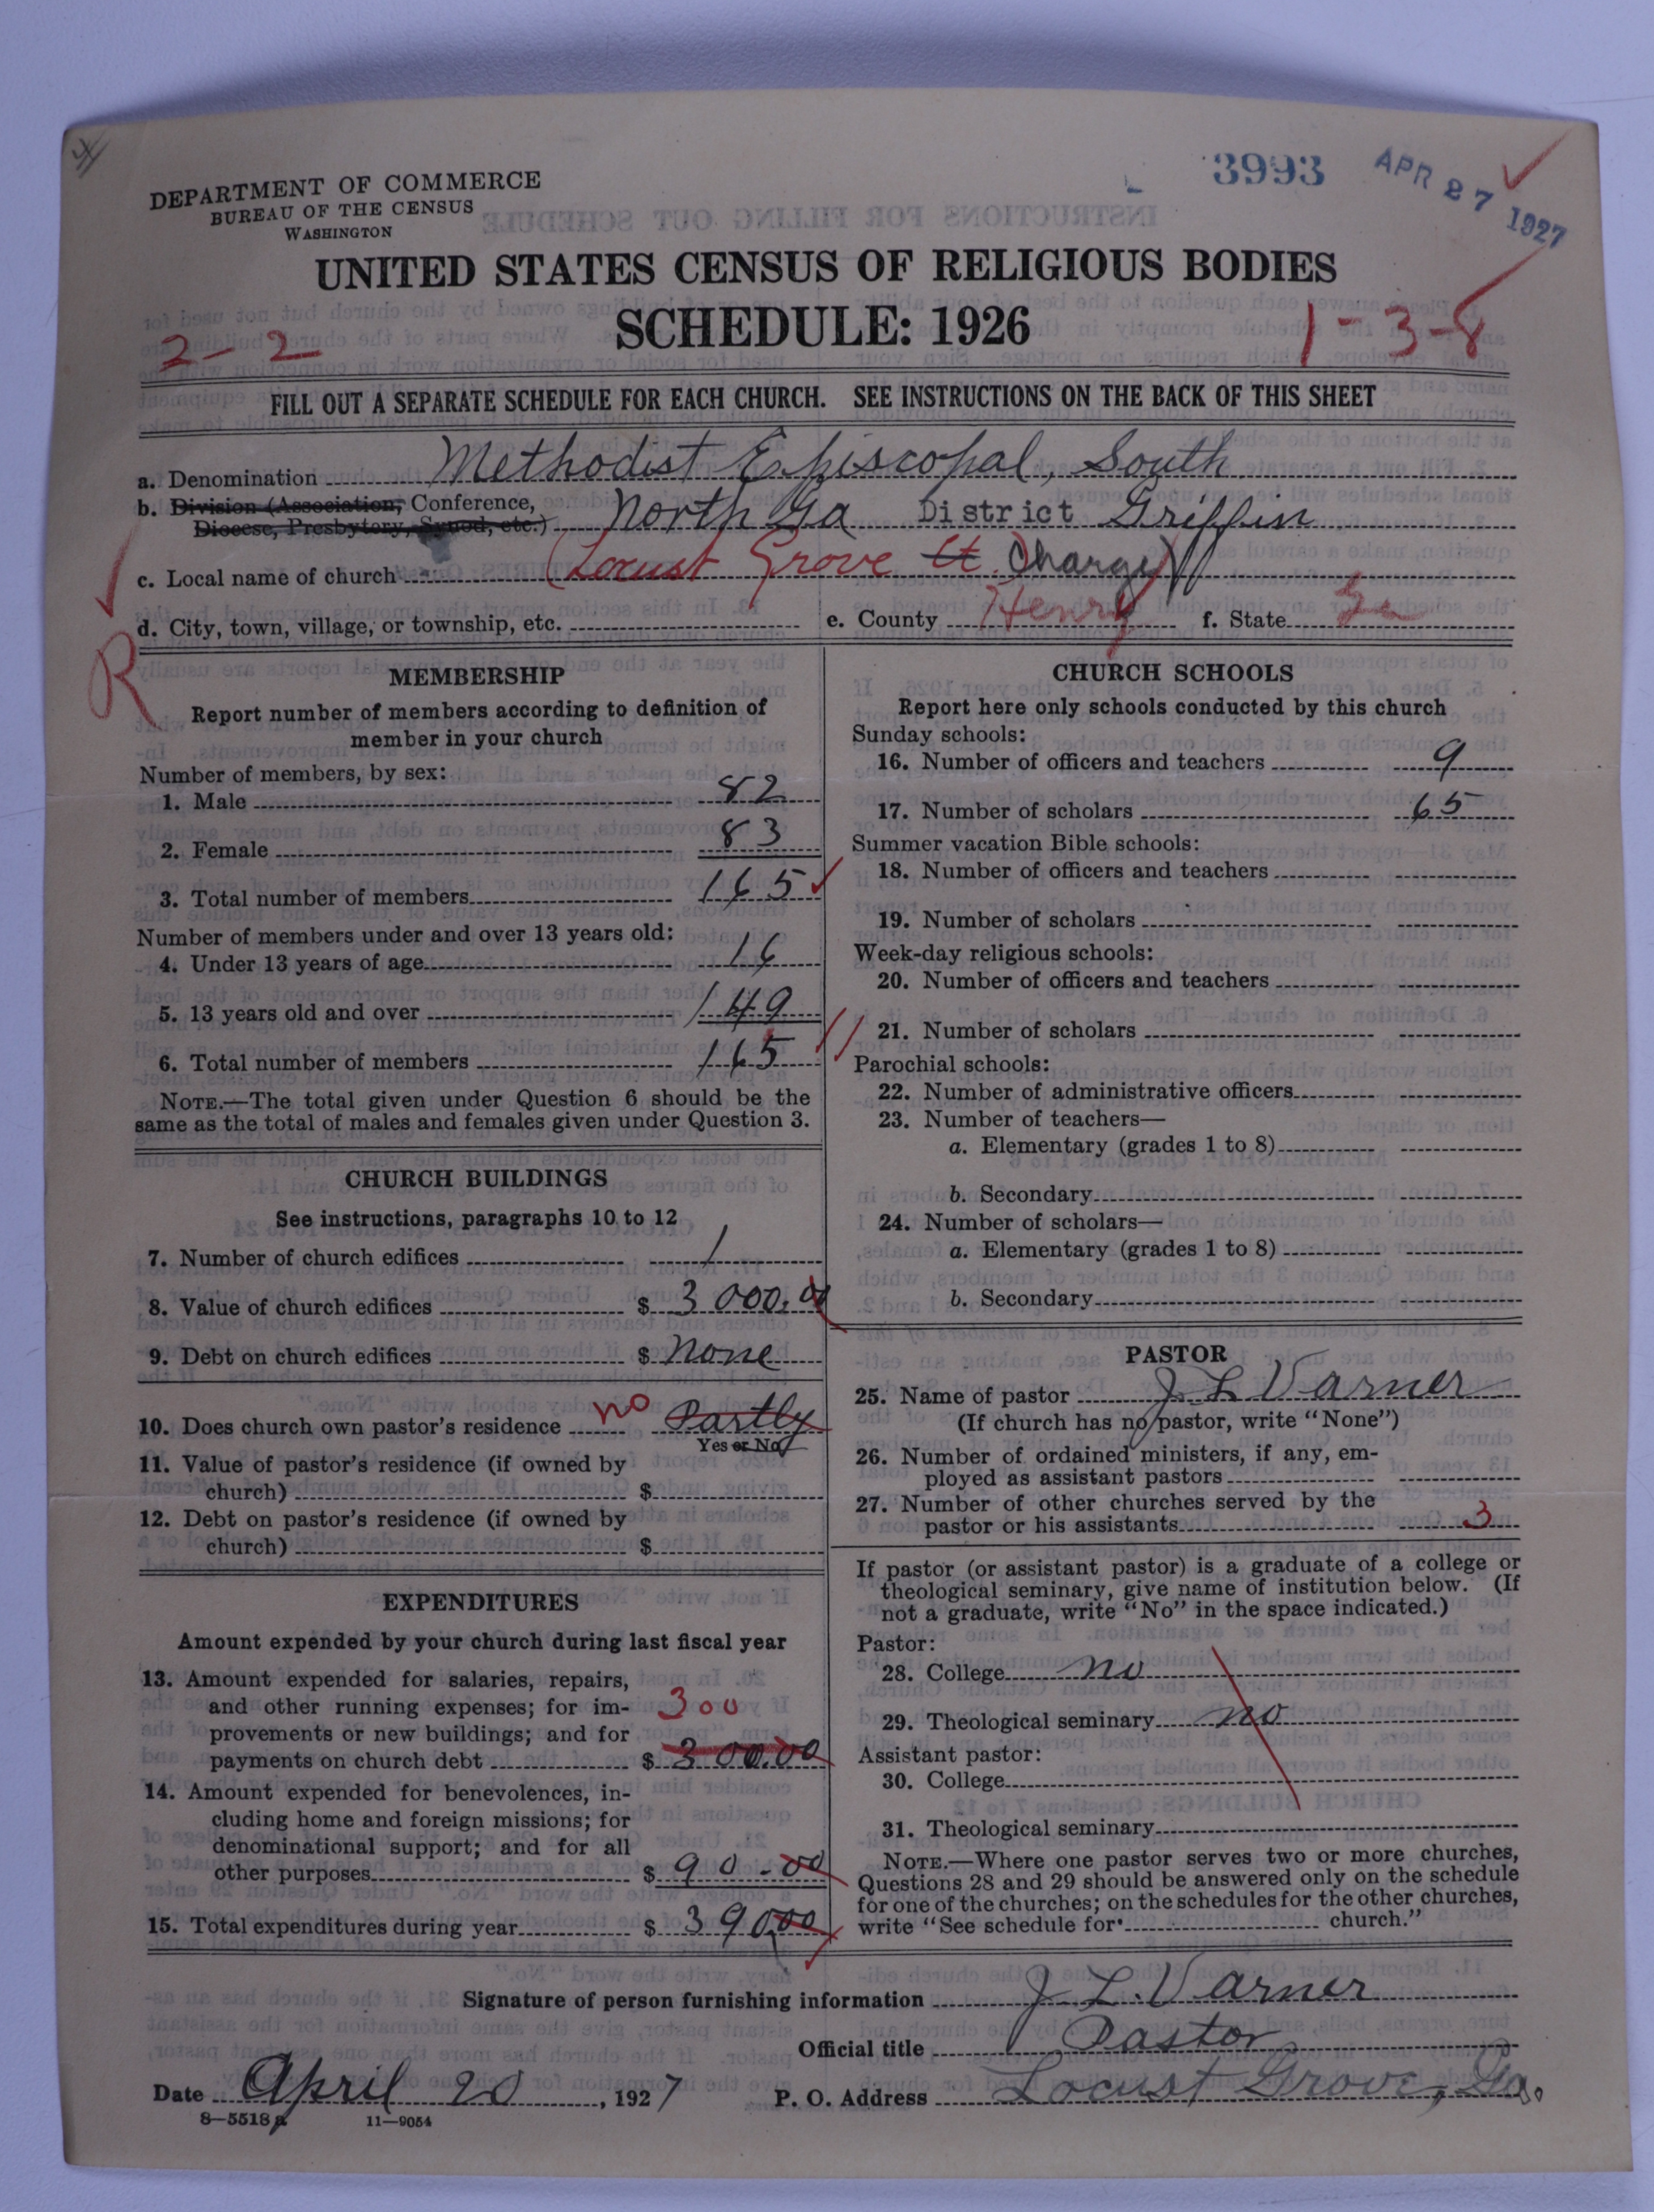 3993 APR 27 1927
DEPARTMENT OF COMMERCE
BUREAU OF THE CENSUS
WASHINGTON
UNITED STATES CENSUS OF RELIGIOUS BODIES
SCHEDULE: 1926
2-2
1-3-8
FILL OUT A SEPARATE SCHEDULE FOR EACH CHURCH. SEE INSTRUCTIONS ON THE BACK OF THIS SHEET
a. Denomination Methodist Episcopal, South
b. Division (Association, Conference,
Diocese, Presbytery, Synod, etc.) North Ga District Griffin
c. Local name of church (Locust Grove Ct. Charge)
d. City, town, village, or township, etc. e. County Henry f. State Ga
R
MEMBERSHIP
Report number of members according to definition of
member in your church
Number of members, by sex:
1. Male 82
2. Female 83
3. Total number of members 165
Number of members under and over 13 years old:
4. Under 13 years of age 16
5. 13 years old and over 149
6. Total number of members 165
NOTE.—The total given under Question 6 should be the
same as the total of males and females given under Question 3.
CHURCH BUILDINGS
See instructions, paragraphs 10 to 12
7. Number of church edifices 1
8. Value of church edifices $ 3000.00
9. Debt on church edifices $ None
10. Does church own pastor's residence no Partly
Yes or No
11. Value of pastor's residence (if owned by
church) $
12. Debt on pastor's residence (if owned by
church) $
EXPENDITURES
Amount expended by your church during last fiscal year
13. Amount expended for salaries, repairs,
and other running expenses; for im- 300
provements or new buildings; and for
payments on church debt $ 300.00
14. Amount expended for benevolences, in-
cluding home and foreign missions; for
denominational support; and for all
other purposes $ 90-00
15. Total expenditures during year $ 390.00
CHURCH SCHOOLS
Report here only schools conducted by this church
Sunday schools:
16. Number of officers and teachers 9
17. Number of scholars 65
Summer vacation Bible schools:
18. Number of officers and teachers
19. Number of scholars
Week-day religious schools:
20. Number of officers and teachers
21. Number of scholars
Parochial schools:
22. Number of administrative officers
23. Number of teachers—
a. Elementary (grades 1 to 8)
b. Secondary
24. Number of scholars—
a. Elementary (grades 1 to 8)
b. Secondary
PASTOR
25. Name of pastor J L Varner
(If church has no pastor, write "None")
26. Number of ordained ministers, if any, em-
ployed as assistant pastors
27. Number of other churches served by the
pastor or his assistants 3
If pastor (or assistant pastor) is a graduate of a college or
theological seminary, give name of institution below. (If
not a graduate, write "No" in the space indicated.)
Pastor:
28. College no
29. Theological seminary no
Assistant pastor:
30. College
31. Theological seminary
NOTE.—Where one pastor serves two or more churches,
Questions 28 and 29 should be answered only on the schedule
for one of the churches; on the schedules for the other churches,
write "See schedule for church."
Signature of person furnishing information J L. Varner
Official title Pastor
Date April 20, 1927 P. O. Address Locust Grove, Ga.
8—5518a 11—9054